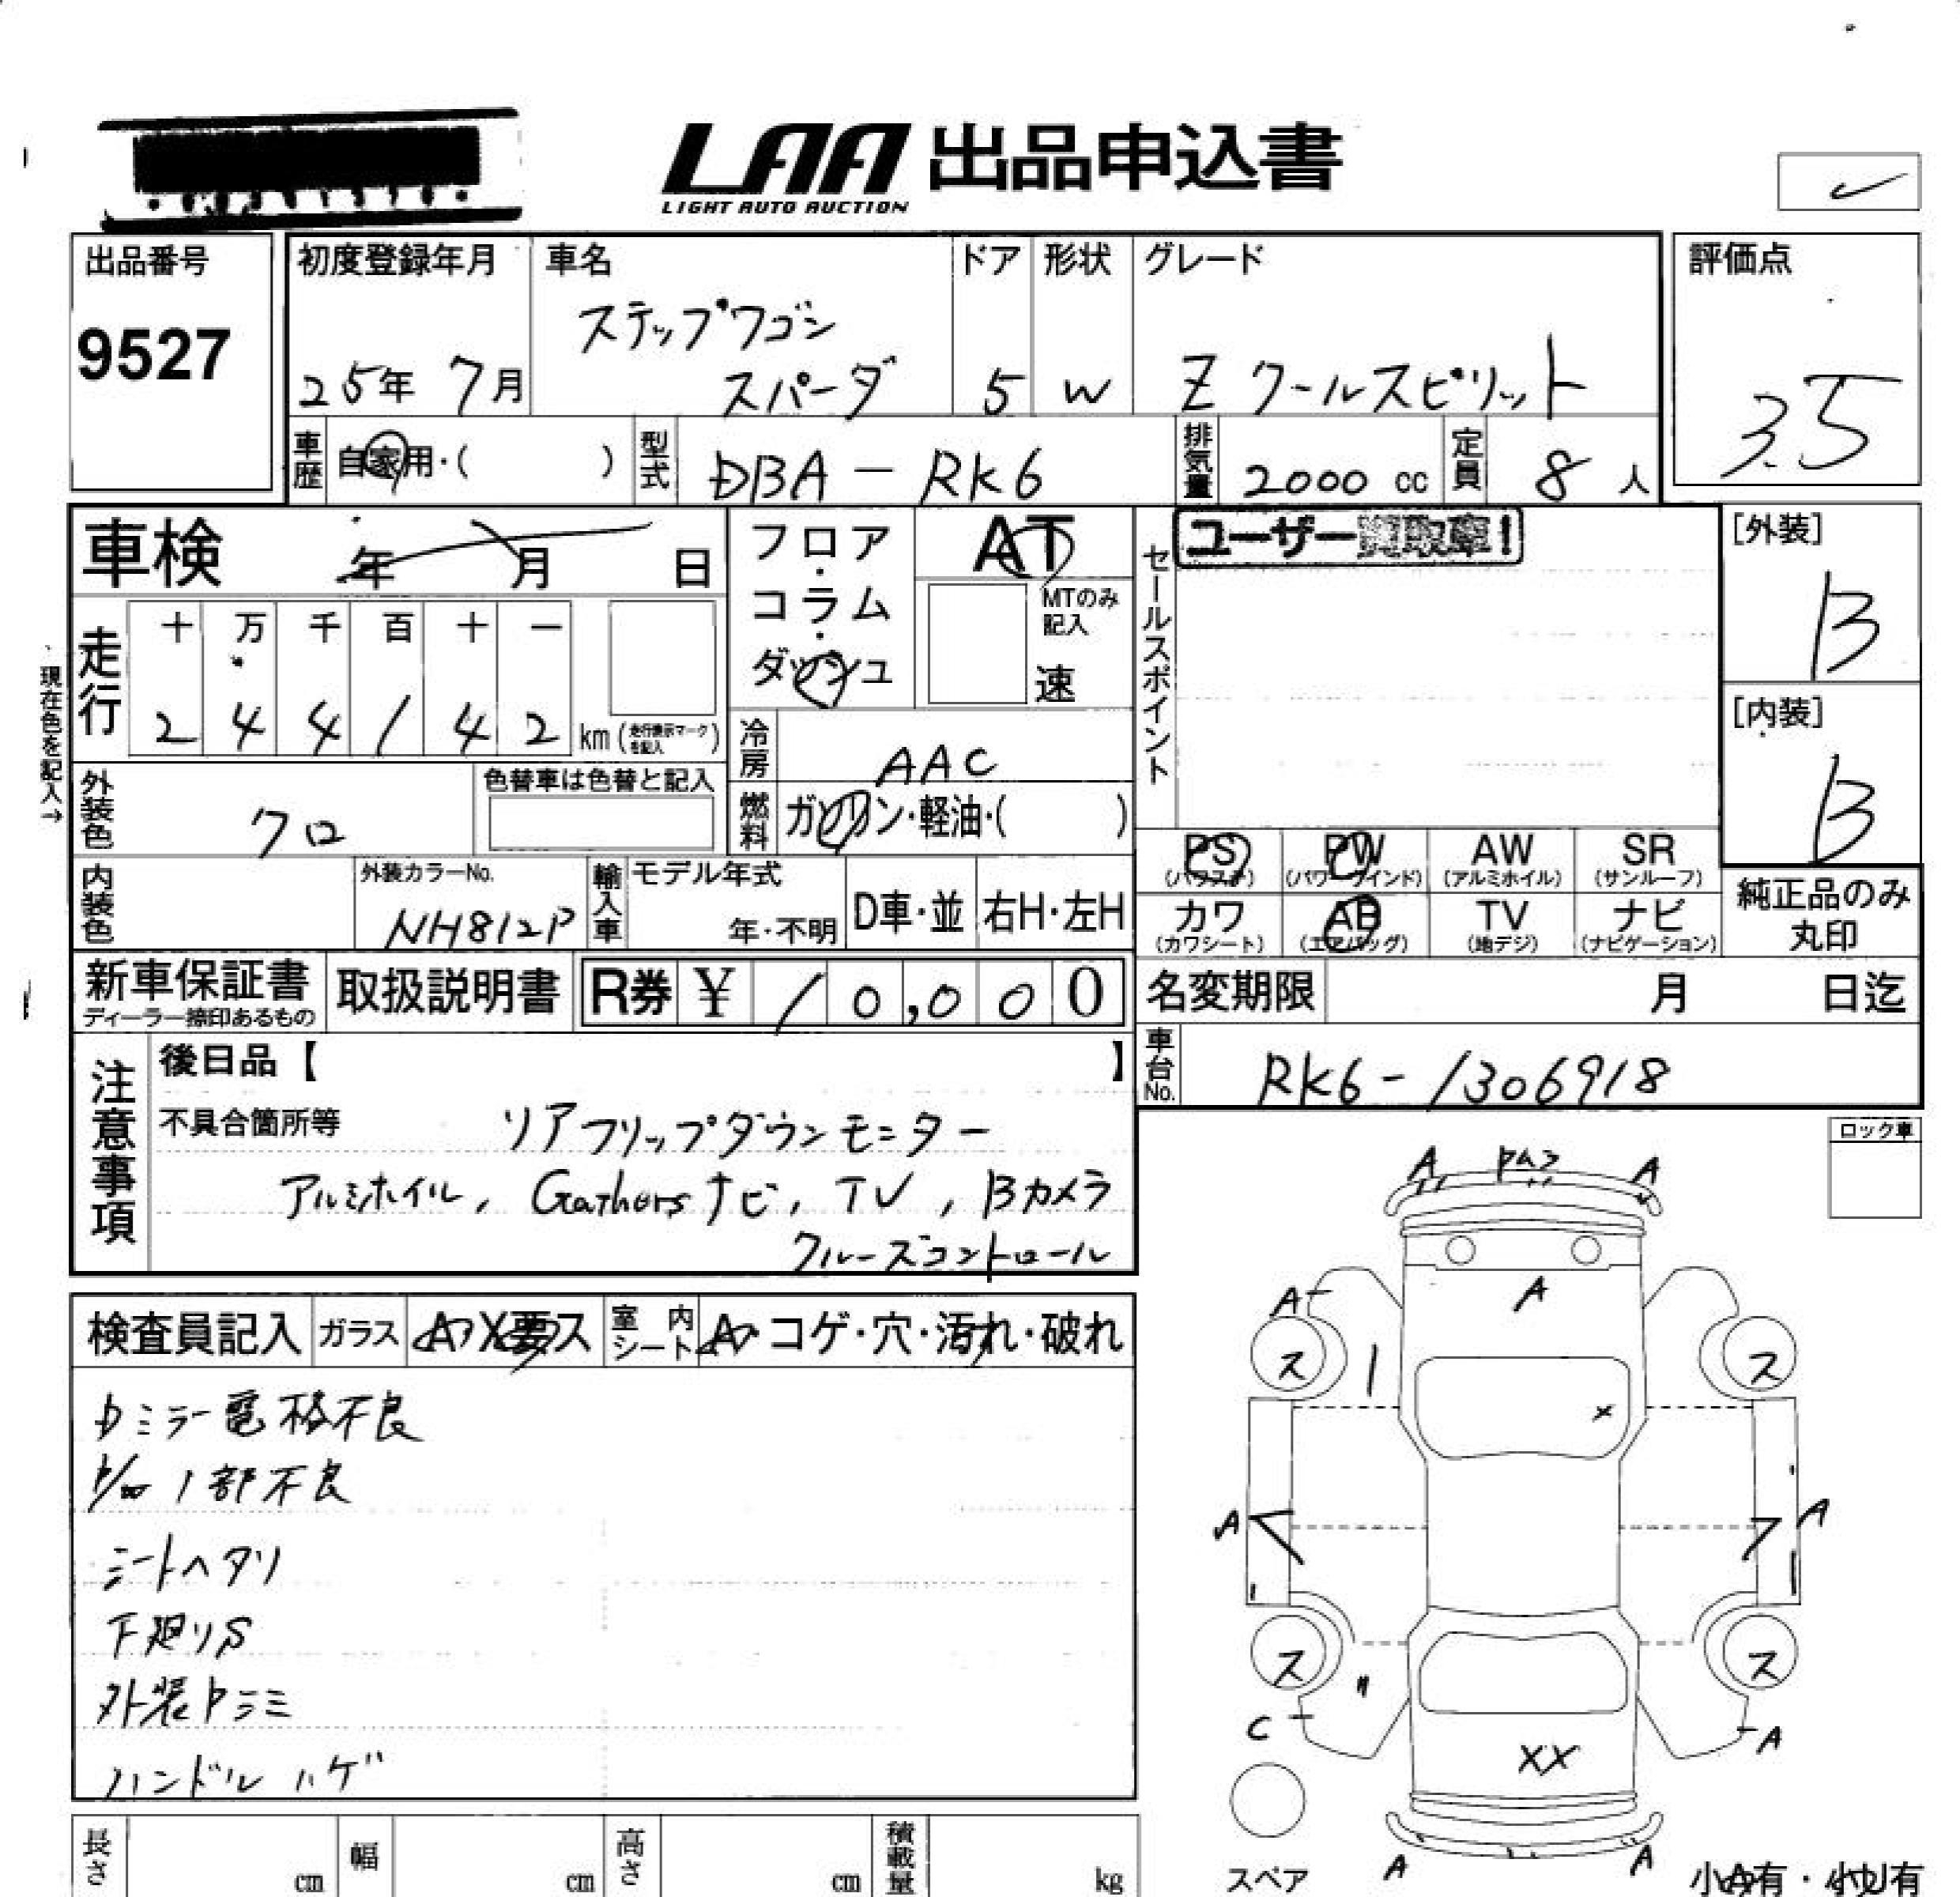 LAA 出品申込書
LIGHT AUTO AUCTION
出品番号
9527
初度登録年月
25年 7月
車名
ステップワゴン
スパーダ
ドア
5
形状
W
グレード
Z クールスピリット
評価点
3.5
車歴 自家用・( )
型式 DBA-RK6
排気量 2000 cc
定員 8 人
車検 年 月 日
走行
十 万 千 百 十 一
2 4 4 1 4 2 km (走行表示マークを記入)
現在色を記入→
フロア・コラム・ダッシュ
AT
MTのみ記入
速
冷房 AAC
燃料 ガソリン・軽油・( )
セールスポイント
ユーザー買取車!
[外装]
B
[内装]
B
外装色 クロ
色替車は色替と記入
内装色
外装カラーNo.
NH812P
輸入車 モデル年式
年・不明
D車・並
右H・左H
PS (パワステ)
PW (パワーウインド)
AW (アルミホイル)
SR (サンルーフ)
カワ (カワシート)
AB (エアバッグ)
TV (地デジ)
ナビ (ナビゲーション)
純正品のみ
丸印
新車保証書
ディーラー捺印あるもの
取扱説明書
R券 ¥ 10,000
名変期限 月 日迄
車台No. RK6-1306918
注意事項
後日品【 】
不具合箇所等 リアフリップダウンモニター
アルミホイル, Gathersナビ, TV, Bカメラ
クルーズコントロール
ロック車
検査員記入
ガラス A・X要ス
室内シート A・コゲ・穴・汚れ・破れ
Dミラー電格不良
1部不良
シートヘタリ
下廻りS
外装
ハンドルハゲ
A
A
A
A
ス
ス
x
A
A
ス
ス
C
A
XX
A
A
スペア
小A有・小U有
長さ cm
幅 cm
高さ cm
積載量 kg